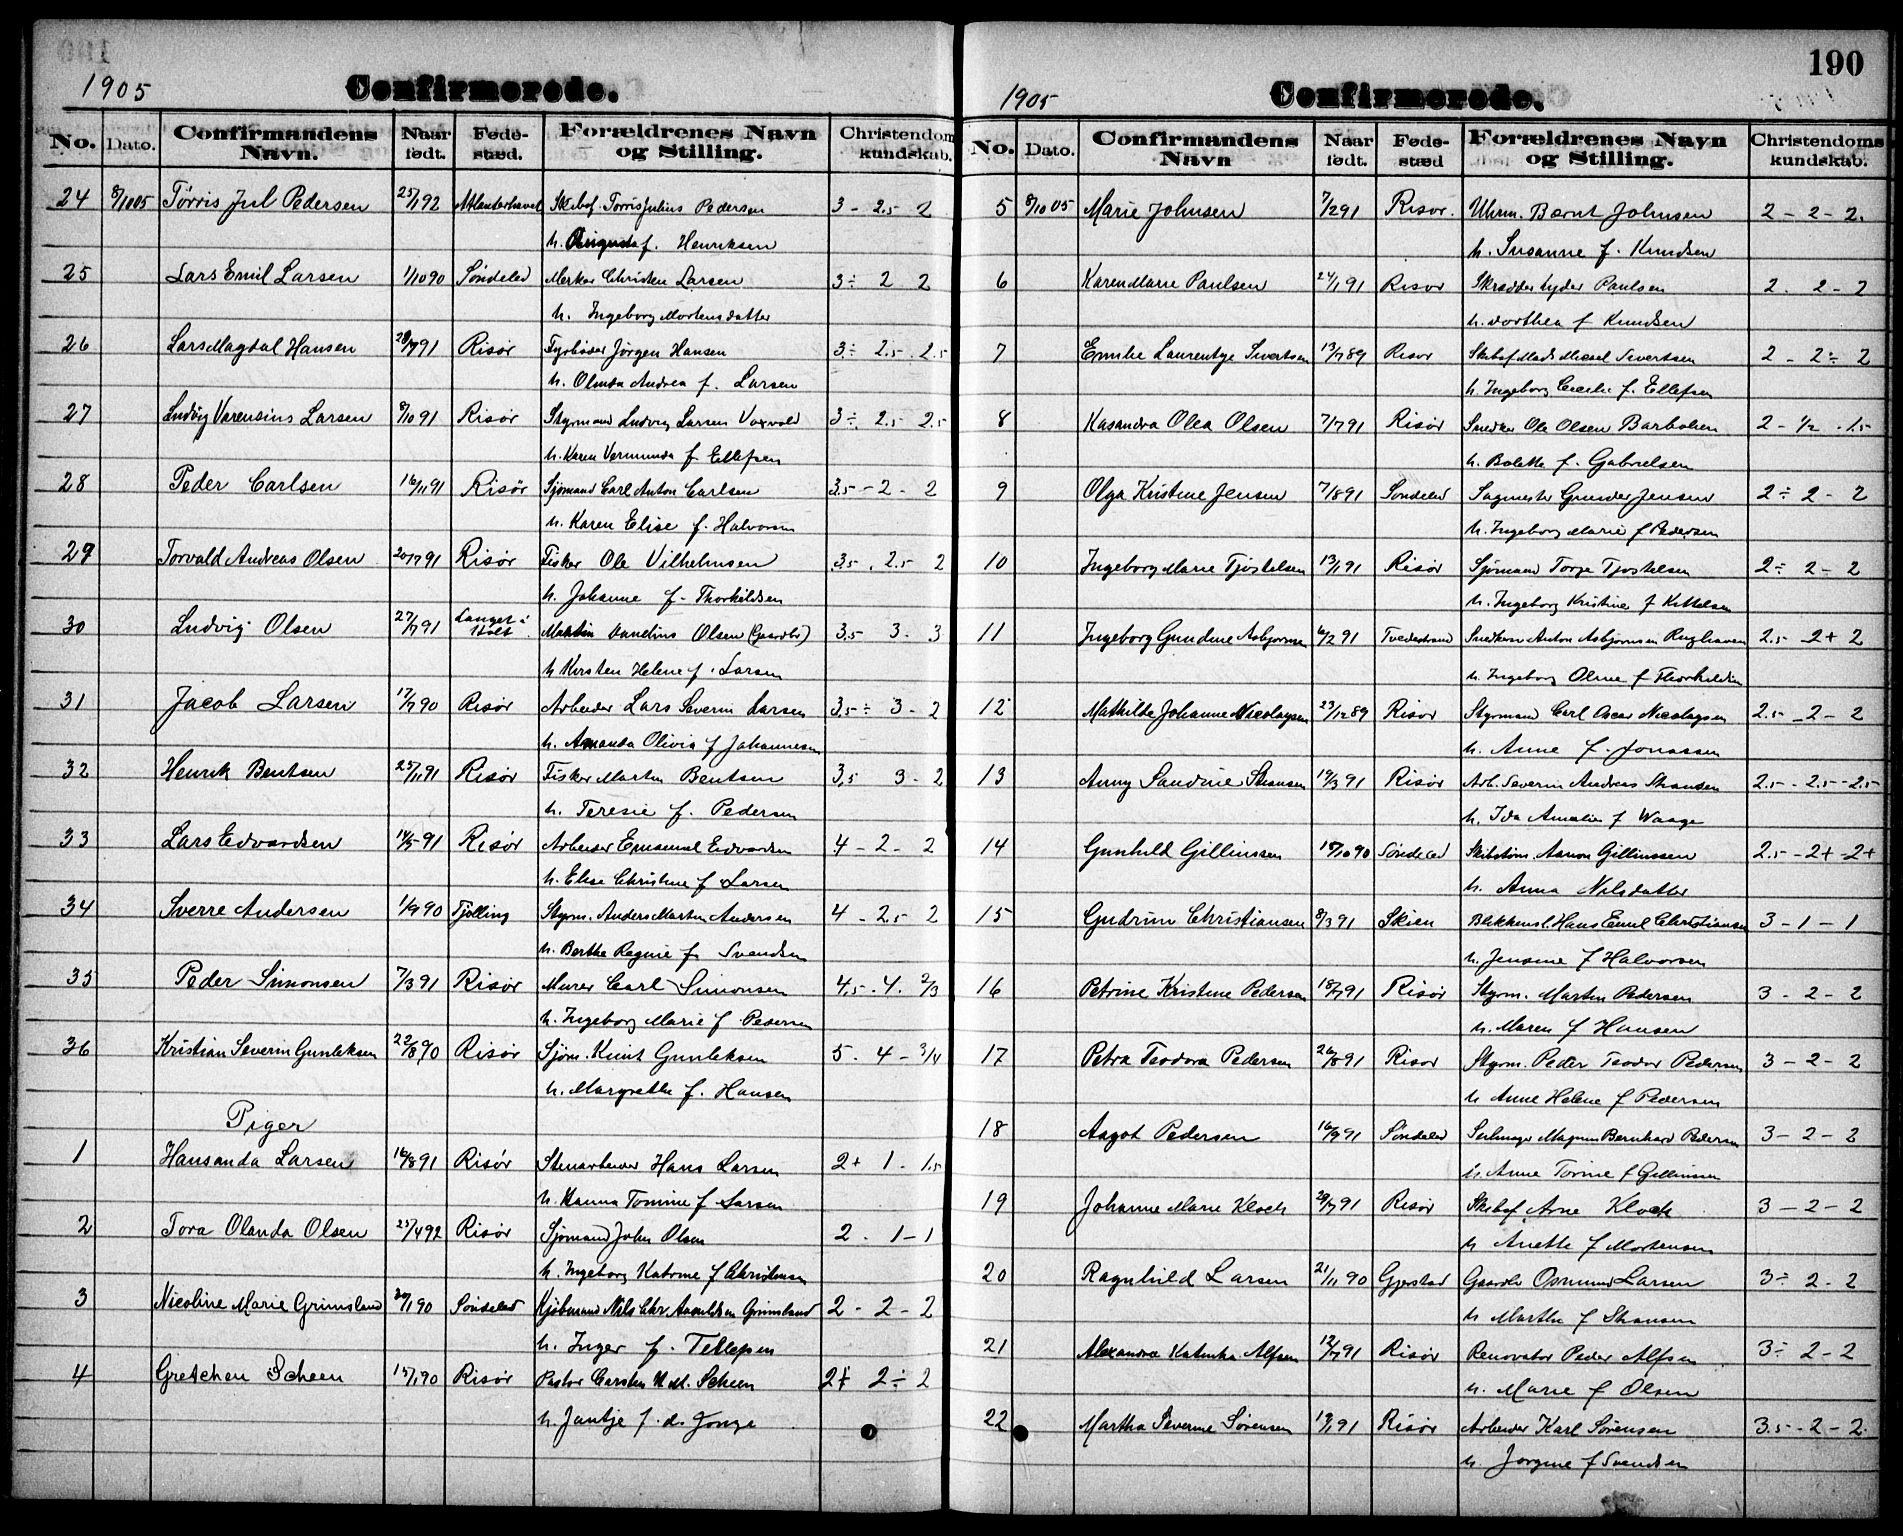 1905 Confirmerede.
No. Dato. Confirmandens Navn. Naar født. Fødested. Forældrenes Navn og Stilling. Christendomskundskab.
24 8/10 05 Tørris Jul Pedersen 25/1 92 Atlanterhavet Skibsf. Torris Julius Pedersen 3 - 2.5 - 2
h. Augusta f. Henriksen
25 Lars Emil Larsen 1/10 90 Søndeled Christen Larsen 3 ÷ 2 2
h. Ingeborg Mortensdatter
26 Lars Magdal Hansen 28/7 91 Risør Fyrbøder Jørgen Hansen 3 ÷ 2.5 - 2.5
h. Olinda Andrea f. Larsen
27 Ludvig Verensius Larsen 8/10 91 Risør Styrmand Ludvig Larsen Voxvold 3 ÷ 2.5 - 2.5
h. Karen Vermunda f. Ellefsen
28 Peder Carlsen 16/11 91 Risør Sjømand Carl Anton Carlsen 3.5 - 2 - 2
h. Karen Elise f. Halvorsen
29 Torvald Andreas Olsen 20/7 91 Risør Fisker Ole Vilhelmsen 3.5 . 2.5 2
h. Johanne f. Thorkildsen
30 Ludvig Olsen 27/7 91 Langet i Holt Olsen 3.5 3 - 3
h. Kirsten Helene f. Larsen
31 Jacob Larsen 17/7 90 Risør Arbeider Lars Severin Larsen 3.5 ÷ 3 - 2
h. Amanda Olivia f Johannesen
32 Henrik Bentsen 25/11 91 Risør Fisker Martin Bentsen 3.5 3 - 2
h. Teresie f. Pedersen
33 Lars Edvardsen 14/5 91 Risør Arbeider Emanuel Edvardsen 4 - 2 - 2
h. Elise Christine f Larsen
34 Sverre Andersen 1/9 90 Tjølling Styrm. Anders Martin Andersen 4 - 2.5 2
h. Berthe Regine f. Svendsen
35 Peder Simonsen 7/3 91 Risør Murer Carl Simonsen 4.5 - 4 . 2/3
h. Ingeborg Marie f. Pedersen
36 Kristian Severin Gunleksen 22/8 90 Risør Sjøm. Knut Gunleksen 5 - 4 - 3/4
h. Margrethe f. Hansen
Piger
1 Hansanda Larsen 16/8 91 Risør Stenarbeider Hans Larsen 2+ 1 - 1.5
h. Hanna Tomine f Larsen
2 Tora Olanda Olsen 25/4 92 Risør Sjømand John Olsen 2 - 1 - 1
h. Ingeborg Katrine f Christensen
3 Nicoline Marie Grimsland 90 Søndeled Kjøbmand Nils Chr. Grimsland 2 - 2 - 2
h. Inger f. Tellefsen
4 Gretchen Scheen 15/1 90 Risør Pastor Carsten H. M. Scheen 2+ 2 ÷ 2
h. Jantje f. de Jonge
190
1905 Confirmerede.
No. Dato. Confirmandens Navn Naar født. Fødested Forældrenes Navn og Stilling. Christendomskundskab.
5 8/10 05 Marie Johnsen 7/2 91 Risør. Uhrm. Bernt Johnsen 2 - 2 - 2.
h. Susanne f. Knudsen
6 Karen Marie Paulsen 24/1 91 Risør Skrædder Lyder Paulsen 2. 2 - 2
h. Dorthea f Knudsen
7 Emilie Laurentze Sivertsen 13/7 89 Risør Skibsf. Mads Micael Sivertsen 2 - 2 ÷ 2
h. Ingeborg Cecilie f. Ellefsen
8 Kasandra Olea Olsen 7/7 91 Risør Snedker Ole Olsen Barbolsen 2 - 1/2 - 1.5
h. Bolette f. Gabrielsen
9 Olga Kristine Jensen 7/8 91 Søndeled Sagmester Gunder Jensen 2 ÷ 2 - 2
h. Ingeborg Marie f Pedersen
10 Ingeborg Marie Tjostelsen 13/1 91 Risør Sjømand Torje Tjostelsen 2 ÷ 2 - 2
h. Ingeborg Kristine f Kittelsen
11 Ingeborg Gundine Asbjørnsen 6/2 91 Tvedestrand Snedker Anton Asbjørnsen 2.5 - 2+ 2
h. Ingeborg Oline f Thorkildsen
12 Mathilde Johanne Nicolaysen 23/12 89 Risør Styrmand Carl Oscar Nicolaysen 2.5 - 2 - 2
h. Anne f. Jonassen
13 Anny Sandine Stiansen 19/3 91 Risør Arb. Severin Andreas Stiansen 2.5 - 2.5 - 2.5
h. Ida Amalie f Waage
14 Gunhild Gillinssen 15/10 90 Søndeled Skibstøm. Aanon Gillinssen 2.5 - 2+ - 2+
h. Anna Nilsdatter
15 Gudrun Christiansen 8/3 91 Skien Blikkensl. Hans Emil Christiansen 3 - 1 - 1
h. Jensine f Halvorsen
16 Petrine Kristine Pedersen 18/7 91 Risør Styrm. Martin Pedersen 3 - 2 - 2
h. Maren f Hansen
17 Petra Teodora Pedersen 26/8 91 Risør Styrm. Peder Teodor Pedersen 3 - 2 - 2
h. Anne Helene f Pedersen
18 Aagot Pedersen 16/9 91 Søndeled Seilmager Magnus Bernhard Pedersen 3 - 2 - 2
h. Anne Torine f Gillinssen
19 Johanne Marie Kloch 29/7 91 Risør Skibsf. Arne Kloch 3 - 2 - 2
h. Anette f Mortensen
20 Ragnhild Larsen 21/11 90 Gjerstad Gaardbr. Osmund Larsen 3 ÷ 2 - 2
h. Marthe f Stiansen
21 Alexandra Katinka Alfsen 12/7 91 Risør Renovatør Peder Alfsen 3 ÷ 2 - 2
h. Marie f Olsen
22 Martha Severine Sørensen 19/1 91 Risør Arbeider Karl Sørensen 3.5 - 2 - 2.
h. Jørgine f Svendsen